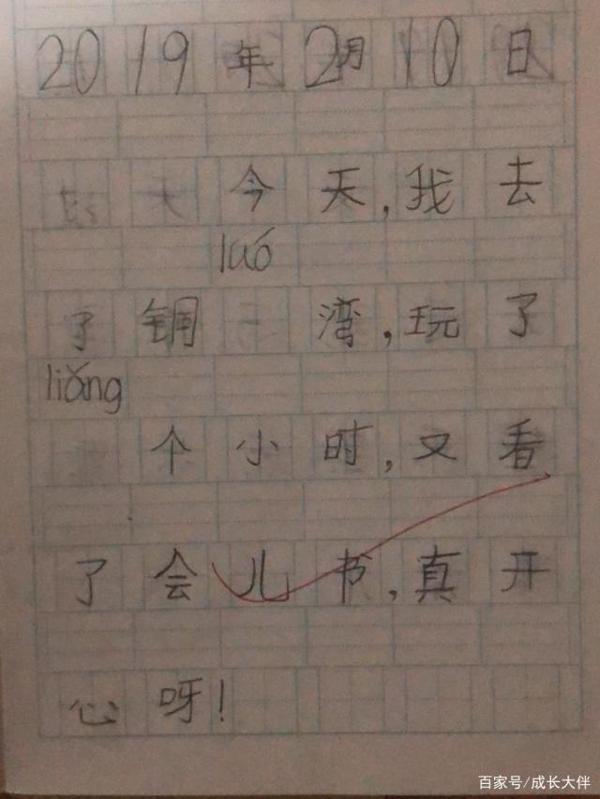 2019年2月10日
今天,我去
luó
了铜湾,玩了
liǎng
个小时,又看
了会儿书,真开
心呀!
百家号/成长大伴